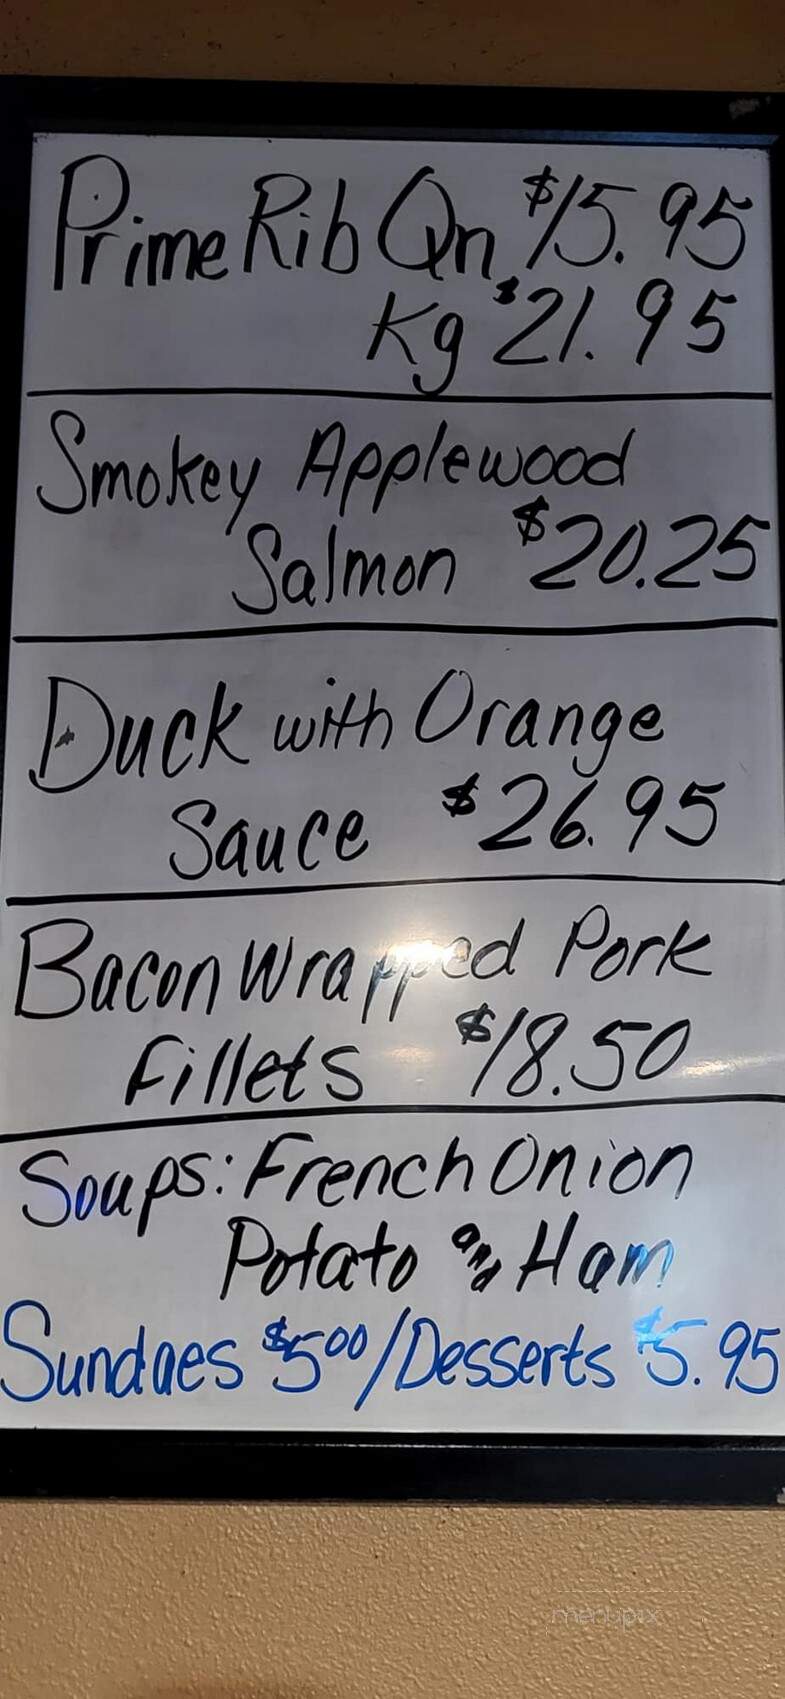 Prime Rib Qn $15.95
Kg $21.95
Smokey Applewood
Salmon $20.25
Duck with Orange
Sauce $26.95
Bacon Wrapped Pork
Fillets $18.50
Soups: French Onion
Potato and Ham
Sundaes $5.00/Desserts $5.95
menupix